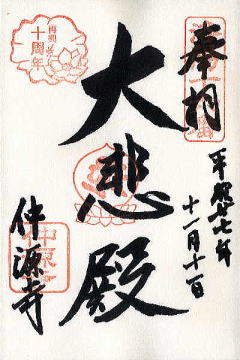 奉拝
平成廿七年
十一月十一日
大悲殿
仲源寺
再興
十周年